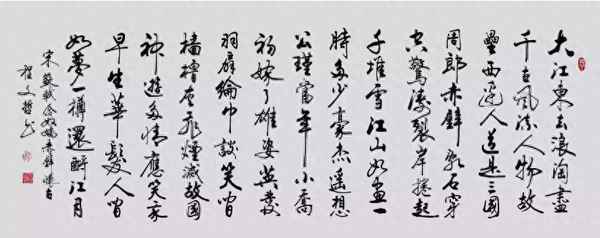 大江東去浪淘盡
千古風流人物故
壘西邊人道是三國
周郎赤壁亂石穿
空驚濤裂岸捲起
千堆雪江山如畫一
時多少豪杰遥想
公瑾當年小喬
初嫁了雄姿英發
羽扇綸巾談笑間
檣櫓灰飛煙滅故國
神遊多情應笑我
早生華髮人間
如夢一樽還酹江月
宋蘇軾念奴嬌赤壁懷古